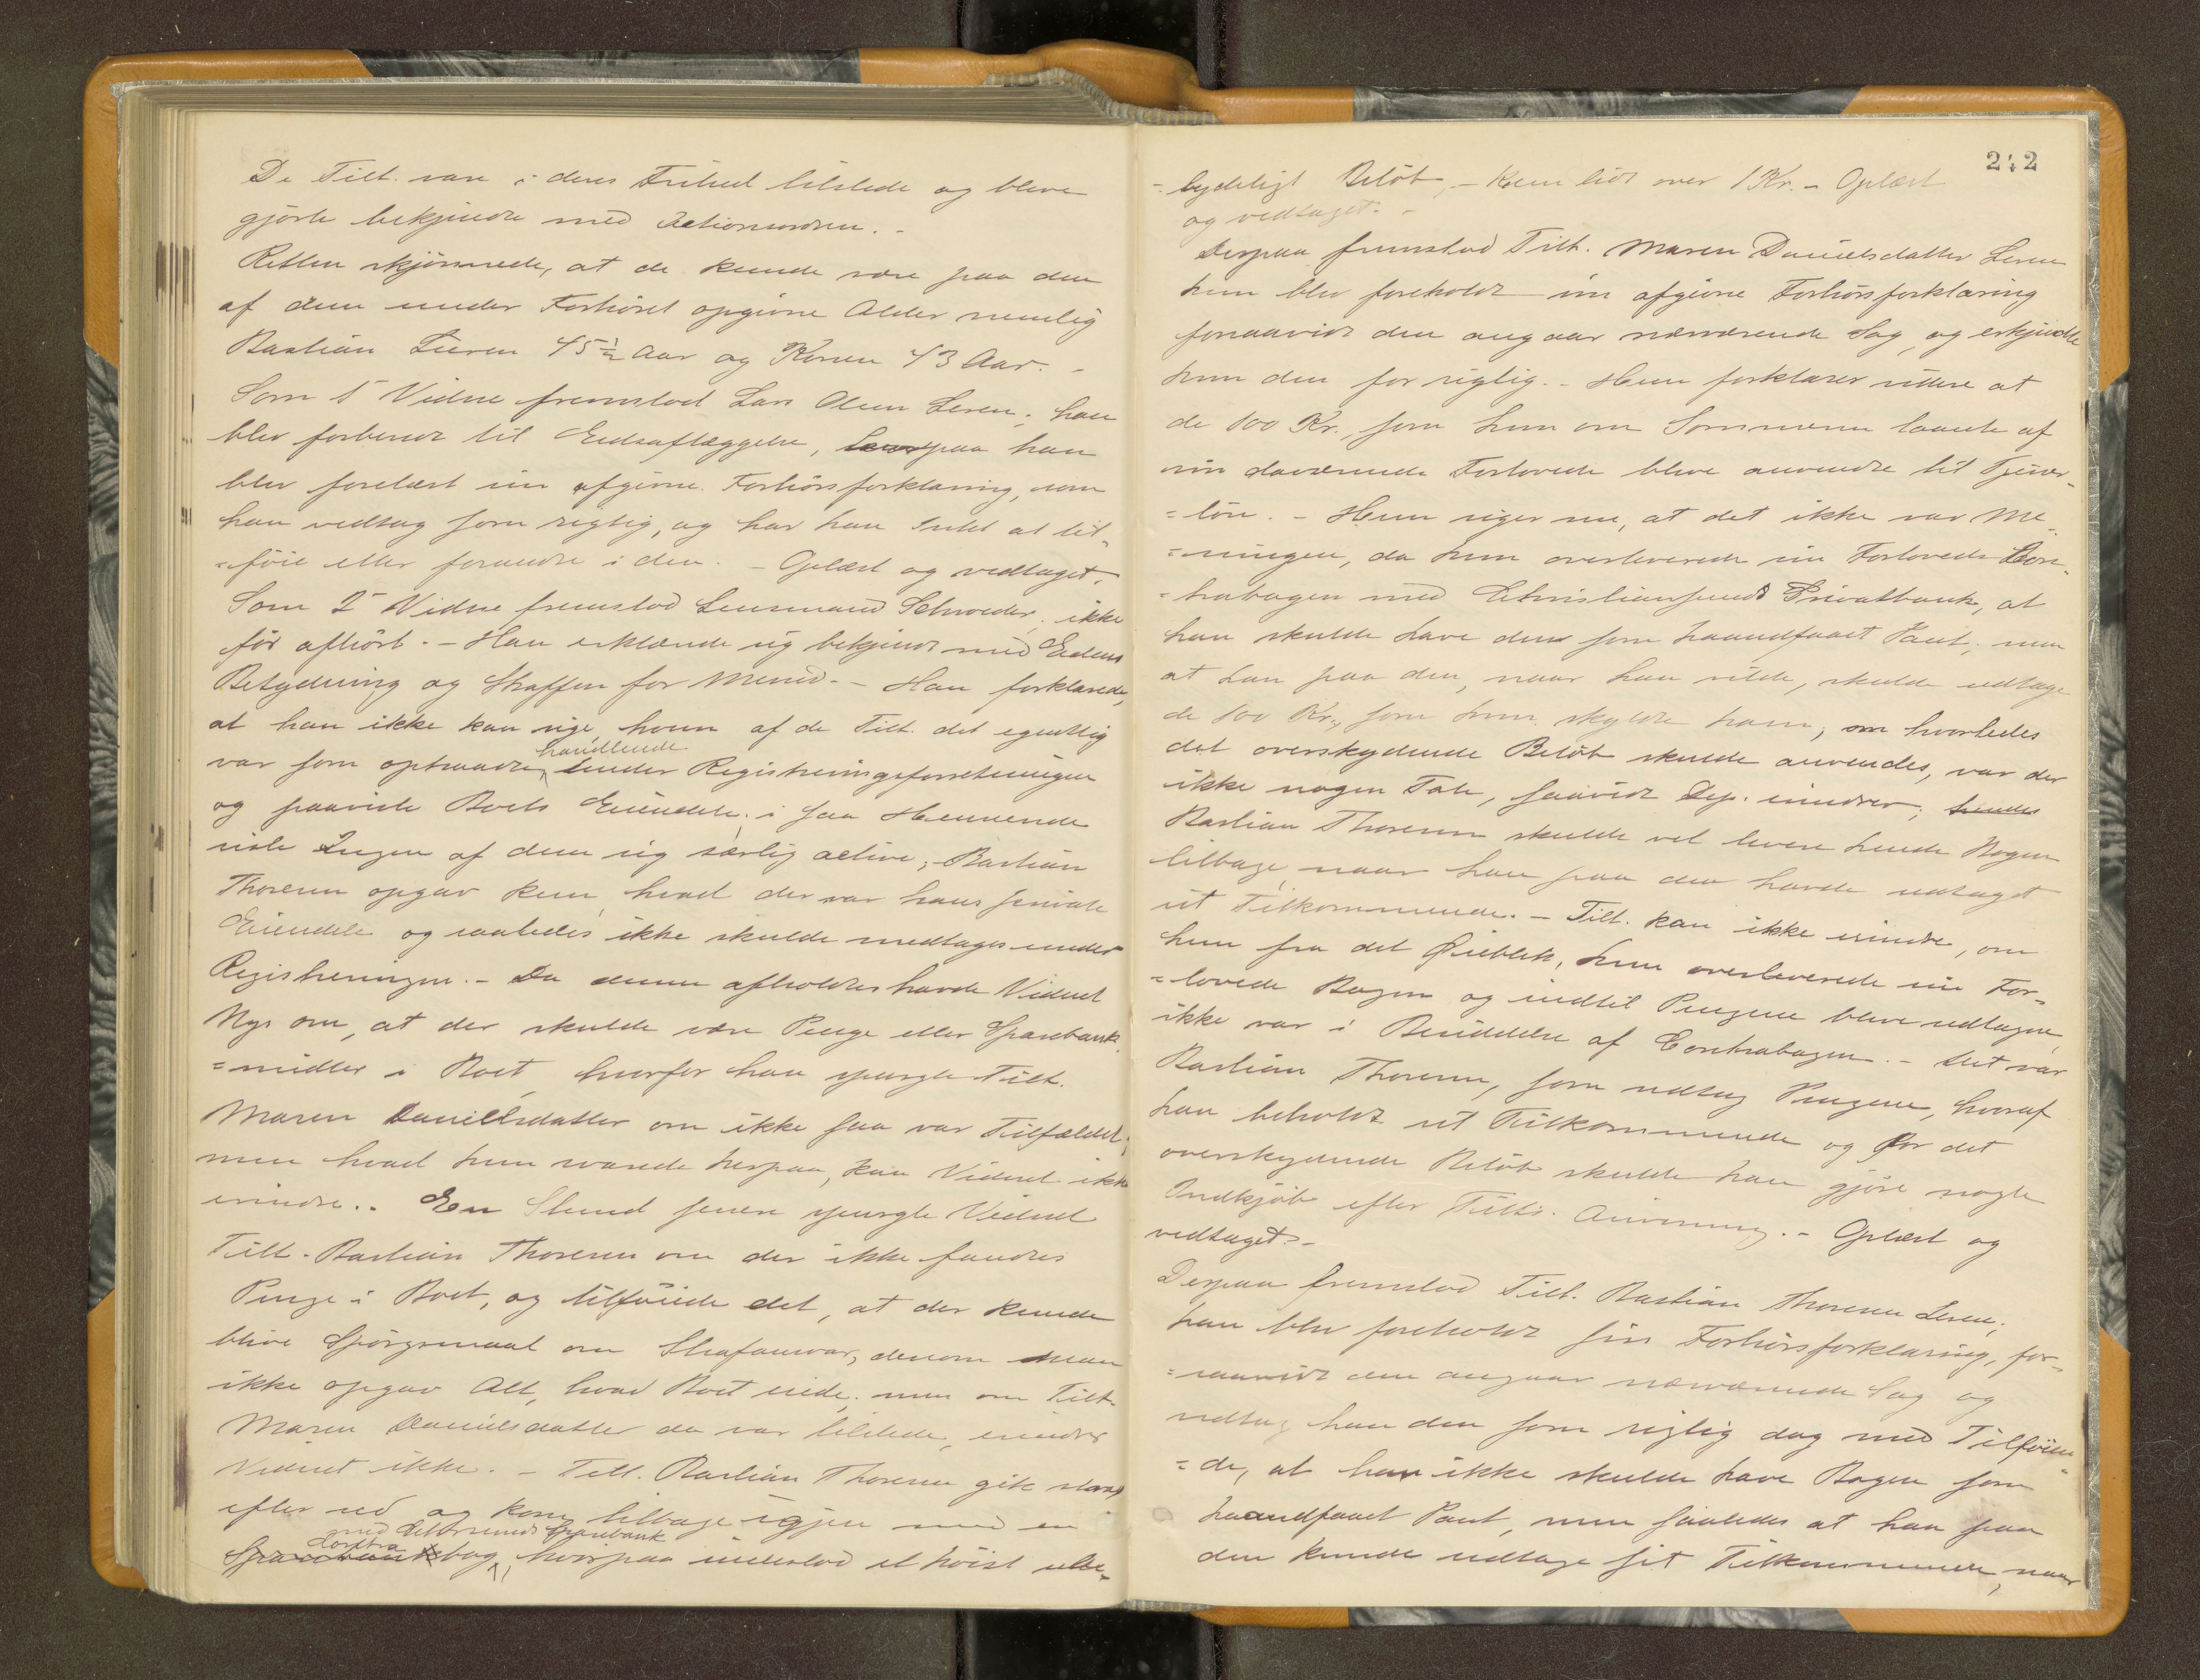 De Tilt. vare i deres Frihed tilstede og bleve
gjorte bekjendte med Actionsordren. -
Retten skjønnede, at de kunde være paa den
af dem under Forhøret opgivne Alder nemlig
Bastian Leren 45½ Aar og Konen 43 Aar. -
Som 1 Vidne fremstod Lars Olsen Leren; han
blev forberedt til Edsaflæggelse, hvorpaa han
blev forelæst sin afgivne Forhørsforklaring, som
han vedtog som rigtig, og har han Intet at til-
=føie eller forandre i den. - Oplæst og vedtaget.
Som 2 Vidne fremstod Lensmand Schrøder, ikke
før afhørt. - Han erklærede sig bekjendt med Edens
Betydning og Straffen for Mened. - Han forklarede,
at han ikke kan sige, hvem af de Tilt. det egentlig
handlende
var som optraadte under Registreringsforretningen
og paaviste Boets Eiendele; i saa Henseende
viste Ingen af dem sig særlig active; Bastian
Thoresen opgav kun, hvad der var hans private
Eiendele og saaledes ikke skulde medtages under
Registreringen. - Da denne afholdtes havde Vidnet
Nys om, at der skulde være Penge eller Sparebank-
=midler i Boet, hvorfor han spurgte Tilt.
Maren Danielsdatter om ikke saa var Tilfældet;
men hvad hun svarede herpaa, kan Vidnet ikke
erindre. - En Stund senere spurgte Vidnet
Tilt. Bastian Thoresen om der ikke fandtes
Penge i Boet, og tilføiede det, at der kunde
blive Spørgsmaal om Strafansvar, dersom man
ikke opgav Alt, hvad Boet eiede; men om Tilt.
Maren Danielsdatter da var tilstede, erindrer
Vidnet ikke. - Tilt. Bastian Thoresen gik strax
efter ned og kom tilbage igjen med en
Contra med Sparebank
Sparebankbog, hvorpaa indestod et høist ube-
242
=tydeligt Beløb, - kun lidt over 1 Kr. - Oplæst
og vedtaget. -
Derpaa fremstod Tilt. Maren Danielsdatter Leren
hun blev foreholdt sin afgivne Forhørsforklaring
forsaavidt den angaar nærværende Sag, og erkjendte
hun den for rigtig. - Hun forklarer videre at
de 100 Kr., som hun om Sommeren laante af
sin daværende Forlovede bleve anvendte til Tjener-
=løn. - Hun siger nu, at det ikke var Me-
=ningen, da hun overleverede sin Forlovede Con-
=trabogen med Christianssunds Privatbank, at
han skulde have den som haandfaaet Pant; men
at han paa den, naar han vilde, skulde udtage
de 100 Kr., som hun skyldte ham; om hvorledes
det overskydende Beløb skulde anvendes, var der
ikke nogen Tale, saavidt Dep. erindrer; hendes
Bastian Thoresen skulde vel levere hende Bogen
tilbage, naar han paa den havde udtaget
sit Tilkommende. - Tilt. kan ikke erindre, om
hun fra det Øieblik, hun overleverede sin For-
=lovede Bogen og indtil Pengene bleve udtagne,
ikke var i Besiddelse af Contrabogen. - Det var
Bastian Thoresen, som udtog Pengene, hvoraf
han beholdt sit Tilkommende og for det
overskydende Beløb skulde han gjøre nogle
Indkjøb efter Tilts. Anvisning. - Oplæst og
vedtaget. -
Derpaa fremstod Tilt. Bastian Thoresen Leren;
han blev foreholdt sin Forhørsforklaring, for-
=saavidt den angaar nærværende Sag og
vedtog han den som rigtig dog med Tilføien-
=de, at han ikke skulde have Bogen som
haandfaaet Pant, men saaledes at han paa
den kunde udtage sit Tilkommende, naar